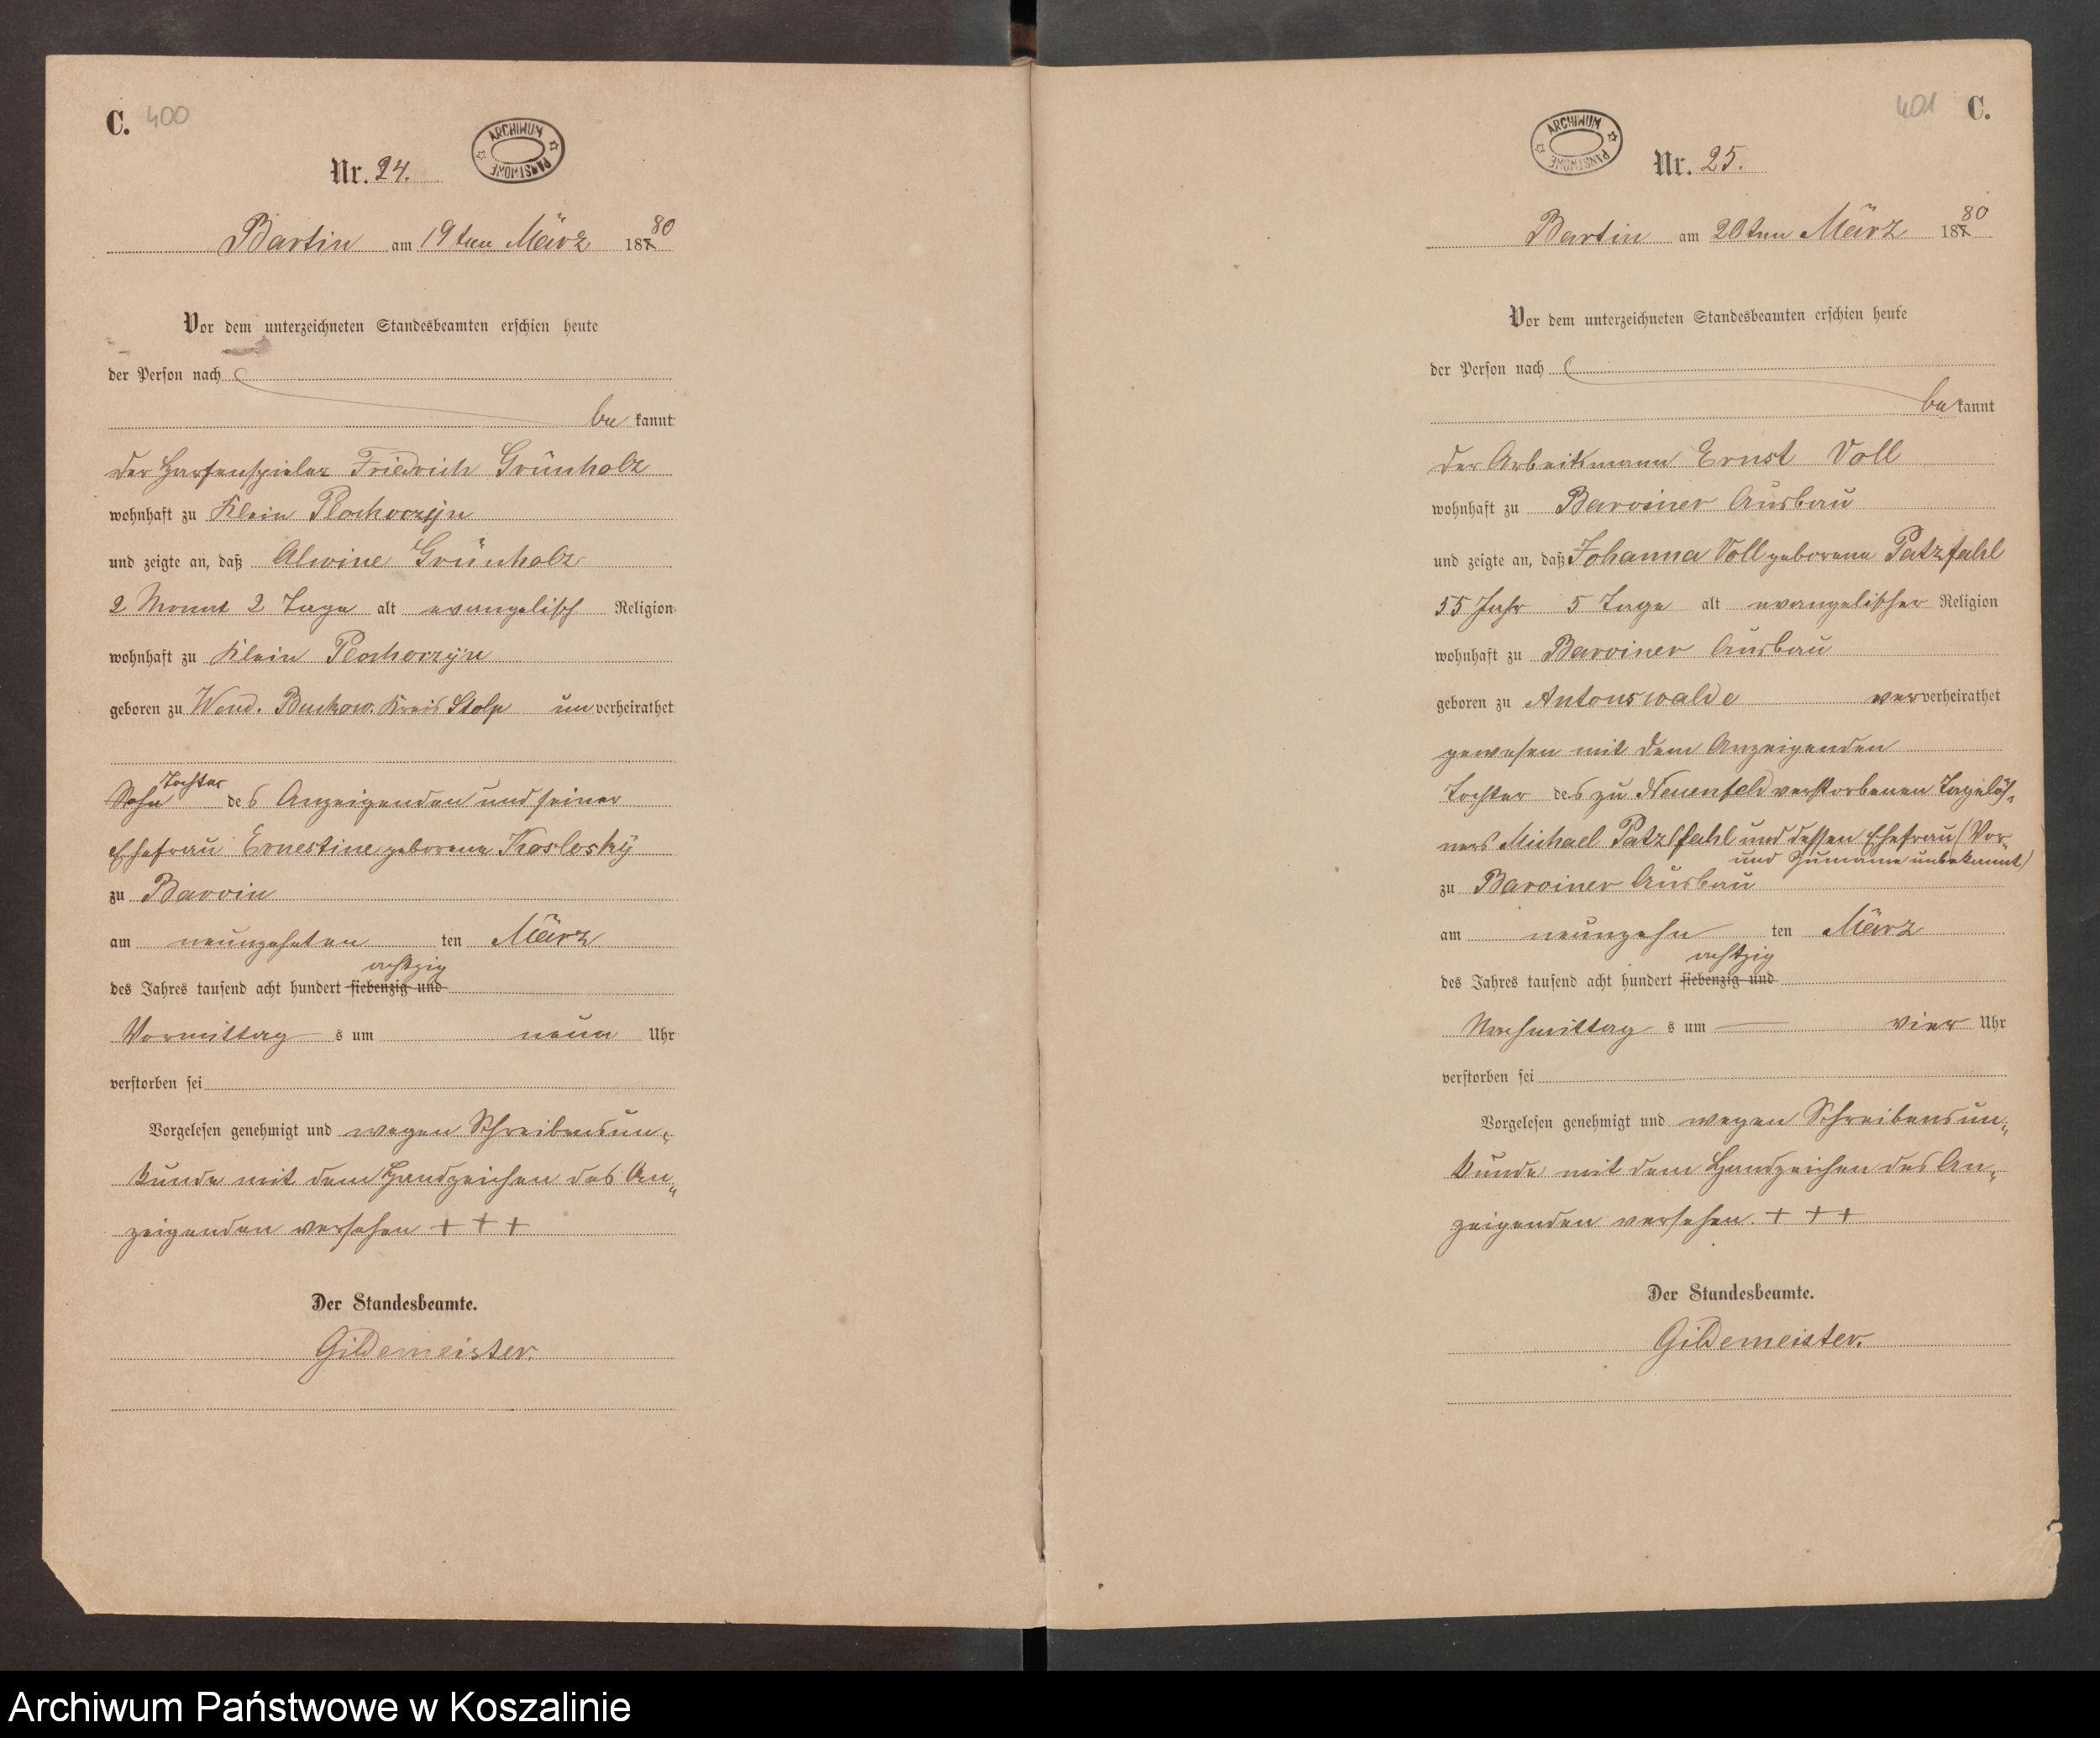 C. 400
ARCHIWUM PAŃSTWOWE
Nr. 24.
Bartin am 19ten März 187 80
Vor dem unterzeichneten Standesbeamten erschien heute
der Person nach
be kannt
der Harfenspieler Friedrich Grünholz
wohnhaft zu Klein
und zeigte an, daß Alwine Grünholz
2 Monat 2 Tage alt evangelisch Religion
wohnhaft zu Klein
geboren zu Wend. Buckow. Kreis Stolp un verheirathet
Sohn Tochter des Anzeigenden und seiner
Ehefrau Ernestine geborene Koslosky
zu Barvin
am neunzehnten ten März
achtzig
des Jahres tausend acht hundert siebenzig und
Vormittag s um neun Uhr
verstorben sei
Vorgelesen genehmigt und wegen Schreibensun„
kunde mit dem Handzeichen des An„
zeigenden versehen + + +
Der Standesbeamte.
Gildemeister.
401 C.
ARCHIWUM PAŃSTWOWE
Nr. 25.
Bartin am 20ten März 187 80
Vor dem unterzeichneten Standesbeamten erschien heute
der Person nach
be kannt
der Arbeitsmann Ernst Voll
wohnhaft zu Barviner Ausbau
und zeigte an, daß Johanna Voll geborene Patzfahl
55 Jahr 5 Tage alt evangelischer Religion
wohnhaft zu Barviner Ausbau
geboren zu Antonswalde ver verheirathet
gewesen mit dem Anzeigenden
Tochter des zu Neuenfeld verstorbenen Tagelöh„
ners Michael Patzfahl und dessen Ehefrau (Vor„
und Zuname unbekannt)
zu Barviner Ausbau
am neunzehn ten März
achtzig
des Jahres tausend acht hundert siebenzig und
Nachmittag s um — vier Uhr
verstorben sei
Vorgelesen genehmigt und wegen Schreibensun„
kunde mit dem Handzeichen des An„
zeigenden versehen. + + +
Der Standesbeamte.
Gildemeister.
Archiwum Państwowe w Koszalinie